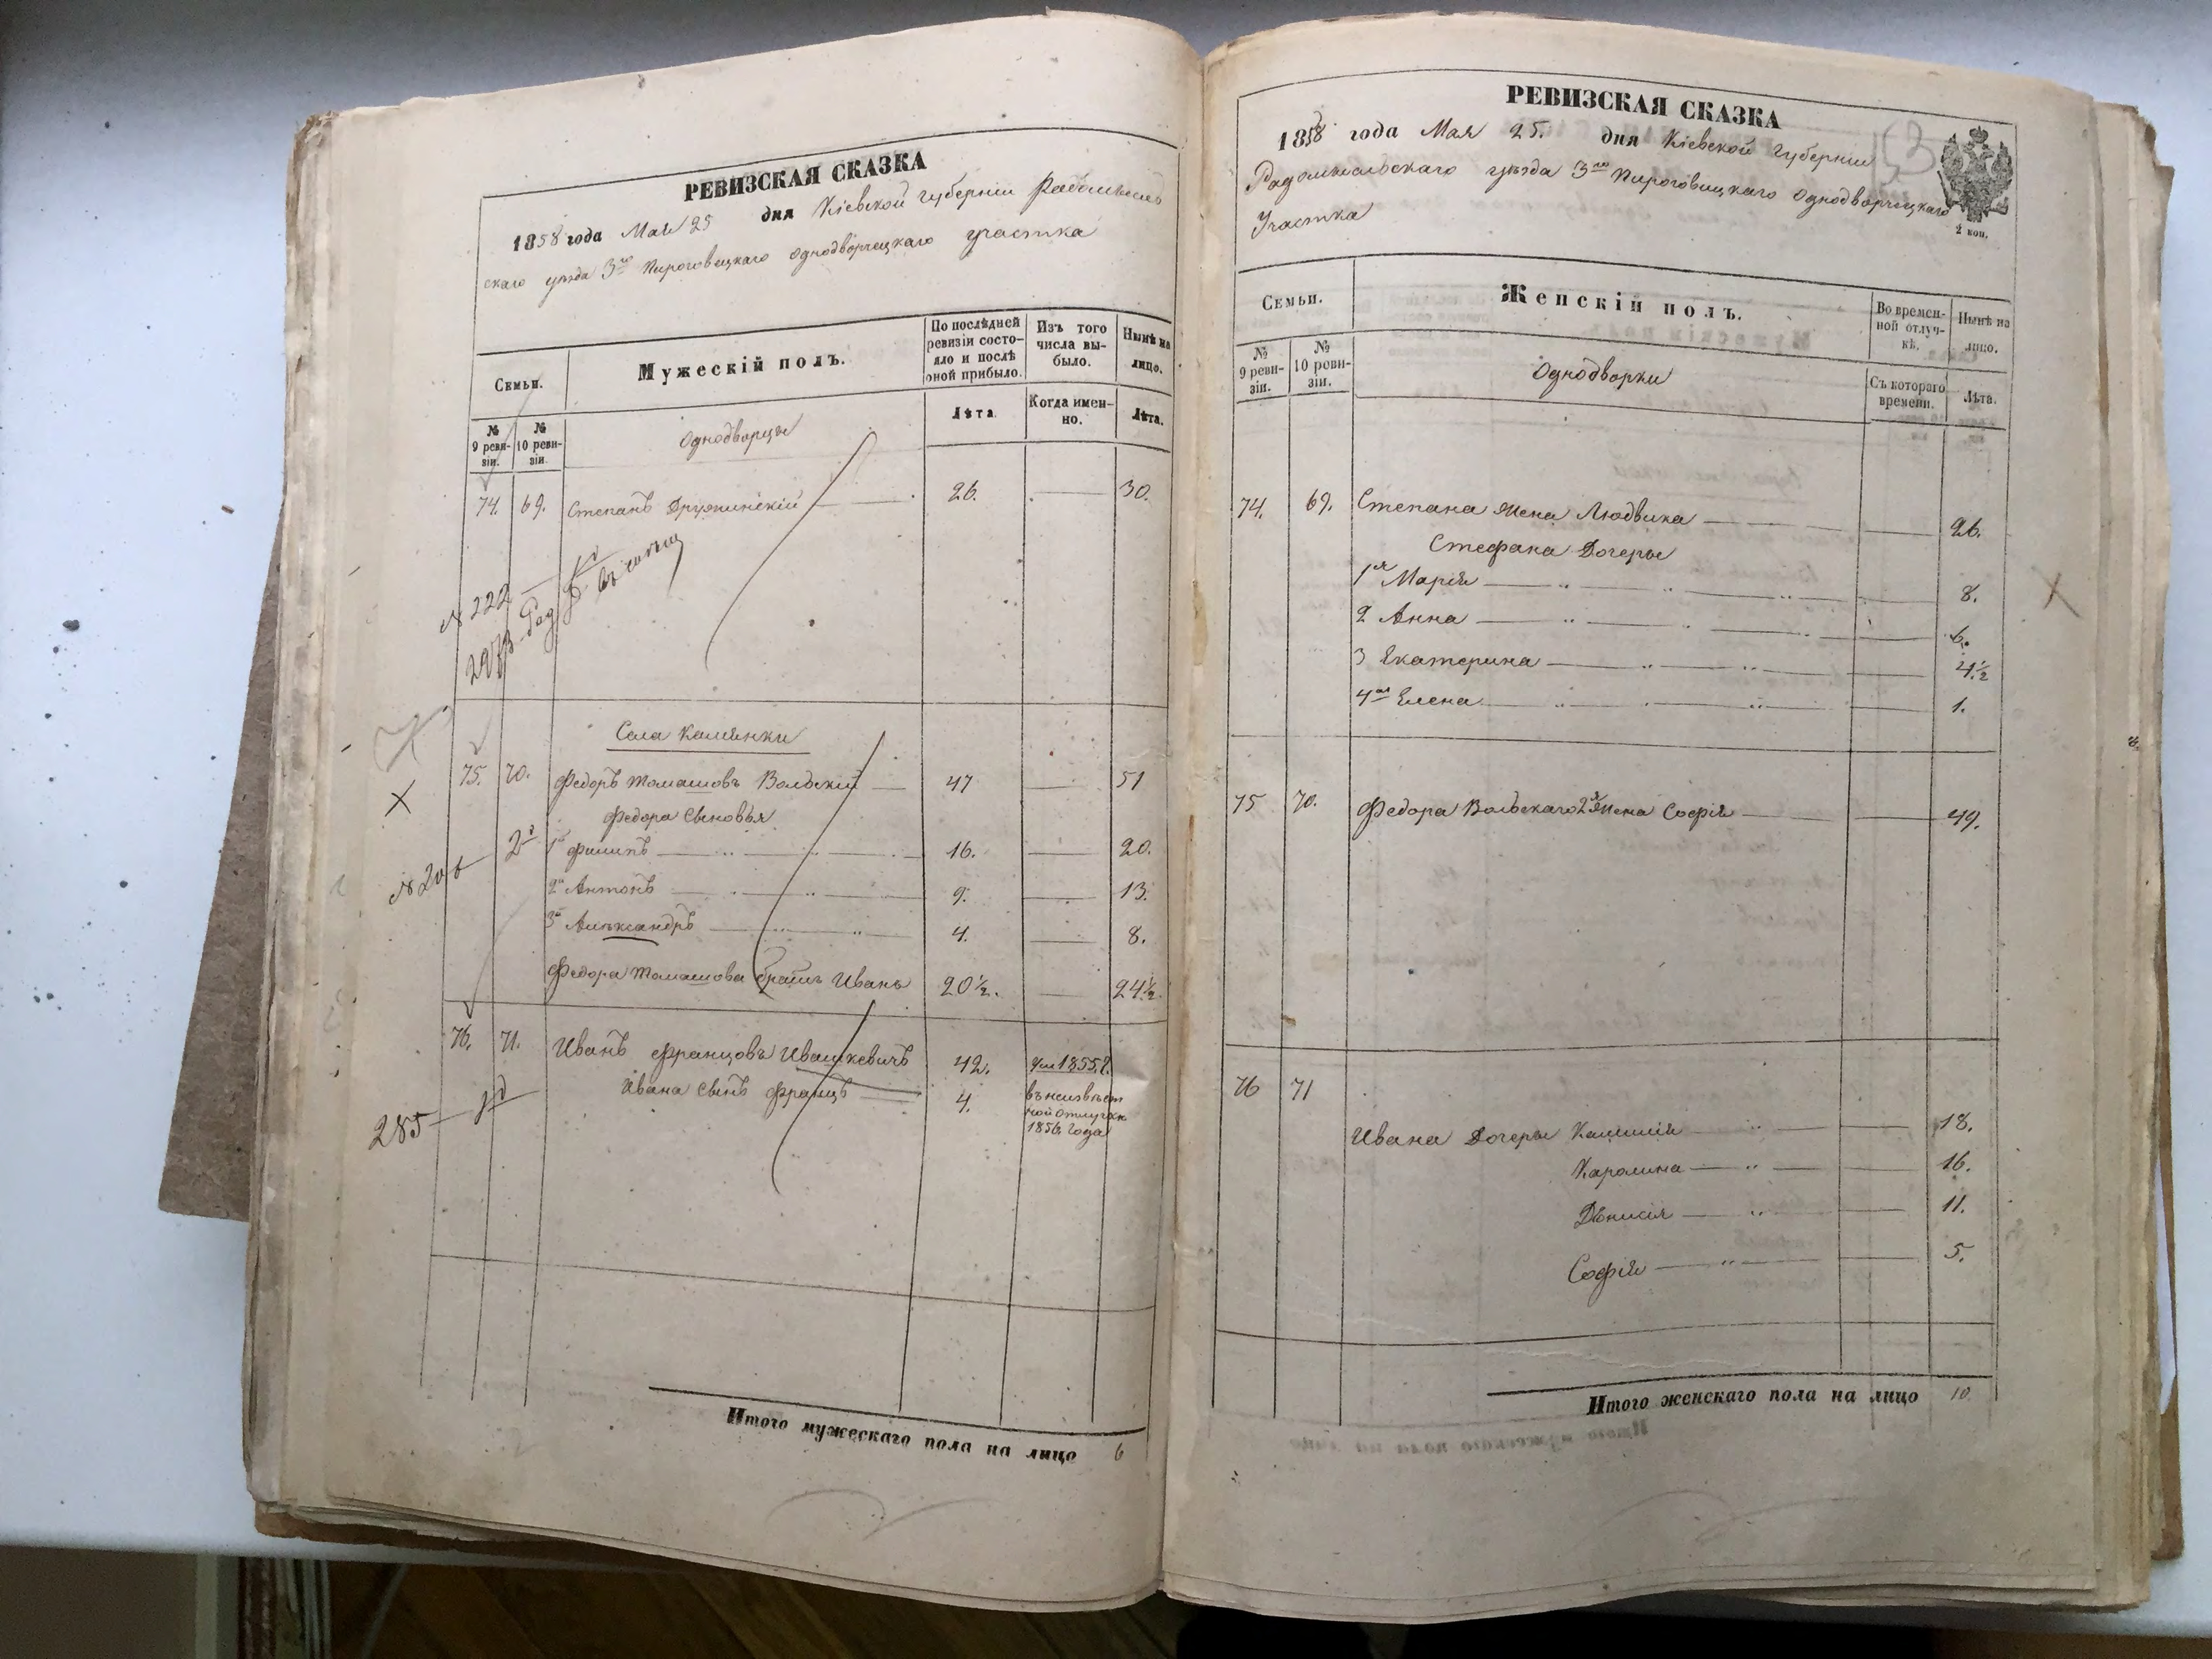 РЕВИЗСКАЯ СКАЗКА
1858 года Мая 25 дня Кіевской губерніи Радомысль
скаго уезда 3го Пироговицкаго однодворческаго участка
Семьи.
Мужескій полъ.
По послѣдней ревизіи состо-
яло и послѣ
оной прибыло.
Изъ того
числа вы-
было.
Нынѣ на
лицо.
№
9 реви-
зіи.
№
10 реви-
зіи.
Однодворцы
Лѣта.
Когда имен-
но.
Лѣта.
74. 69. Степанъ Дружинскій 26. 30.
№ 222
Села Каменки
75. 70. Федоръ Томашовъ Вольскій 47 51
Федора Сыновья
1й Филипъ 16. 20.
2й Антонъ 9. 13.
3й Алѣксандръ 4. 8.
Федора Томашова братъ Иванъ 20½. 24½.
76. 71. Иванъ Францовъ Ивашкевичъ 42. ум 1855 г.
Ивана Сынъ Францъ 4. въ неизвѣст
ной отлучкѣ
1856 года
285
Итого мужескаго пола на лицо 6
РЕВИЗСКАЯ СКАЗКА
1858 года Мая 25. дня Кіевской губерніи
Радомысльскаго уѣзда 3го Пироговицкаго однодворческаго
Участка
53
2 коп.
Семьи.
Женскій полъ.
Во времен-
ной отлуч-
кѣ.
Нынѣ на
лицо.
№
9 реви-
зіи.
№
10 реви-
зіи.
Однодворки
Съ котораго
времени.
Лѣта.
74. 69. Степана жена Людвика 26.
Стефана Дочеры
1я Марія 8.
2 Анна 6.
3 Екатерина 4½
4ая Елена 1.
75 70. Федора Вольскаго 2я жена Софія 49.
76 71
Ивана Дочеры 18.
Каролина 16.
Діонисія 11.
Софія 5.
Итого женскаго пола на лицо 10.